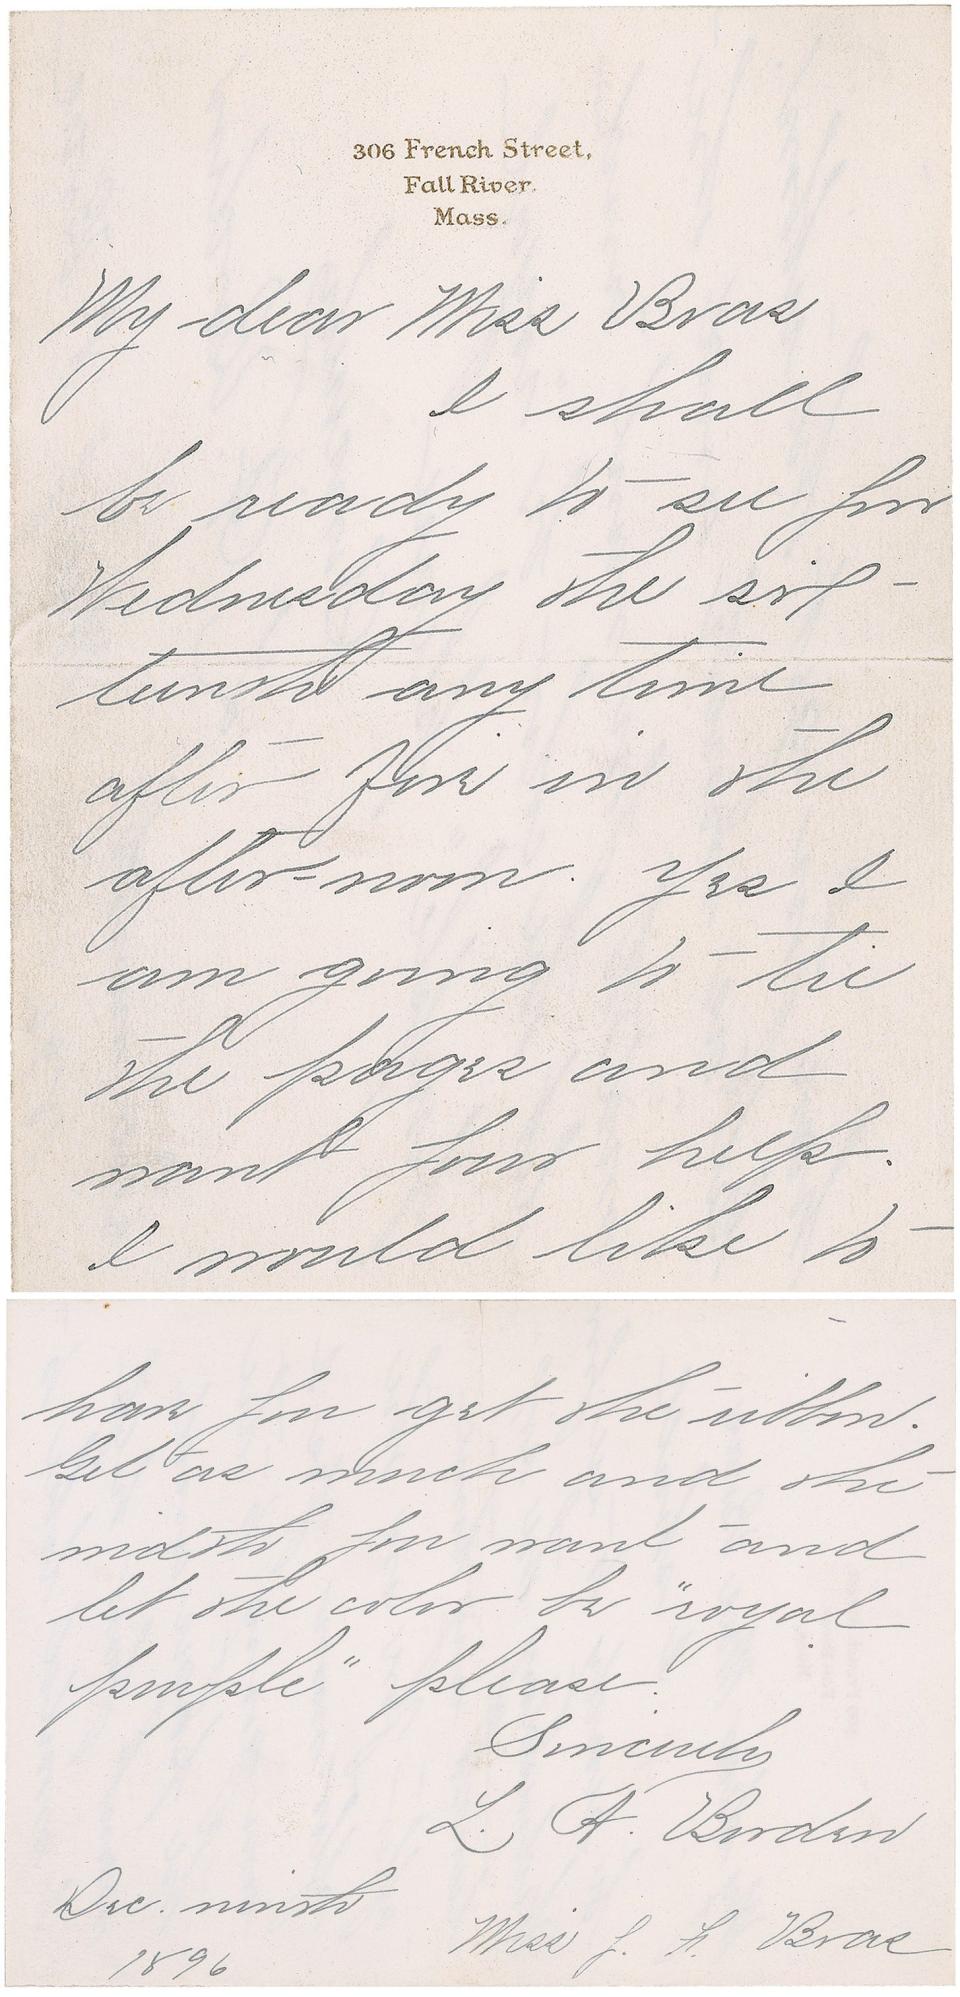 306 French Street,
Fall River.
Mass.
My dear Miss Bras
I shall
be ready to see you
Wednesday the six-
teenth any time
after five in the
after-noon. Yes I
am going to tie
the pages and
want your help.
I would like to
have you get the ribbon.
Get as much and the
width you want and
let the color be "royal
purple" please.
Sincerely
L. A. Borden
Dec. ninth
1896
Miss J. H. Bras